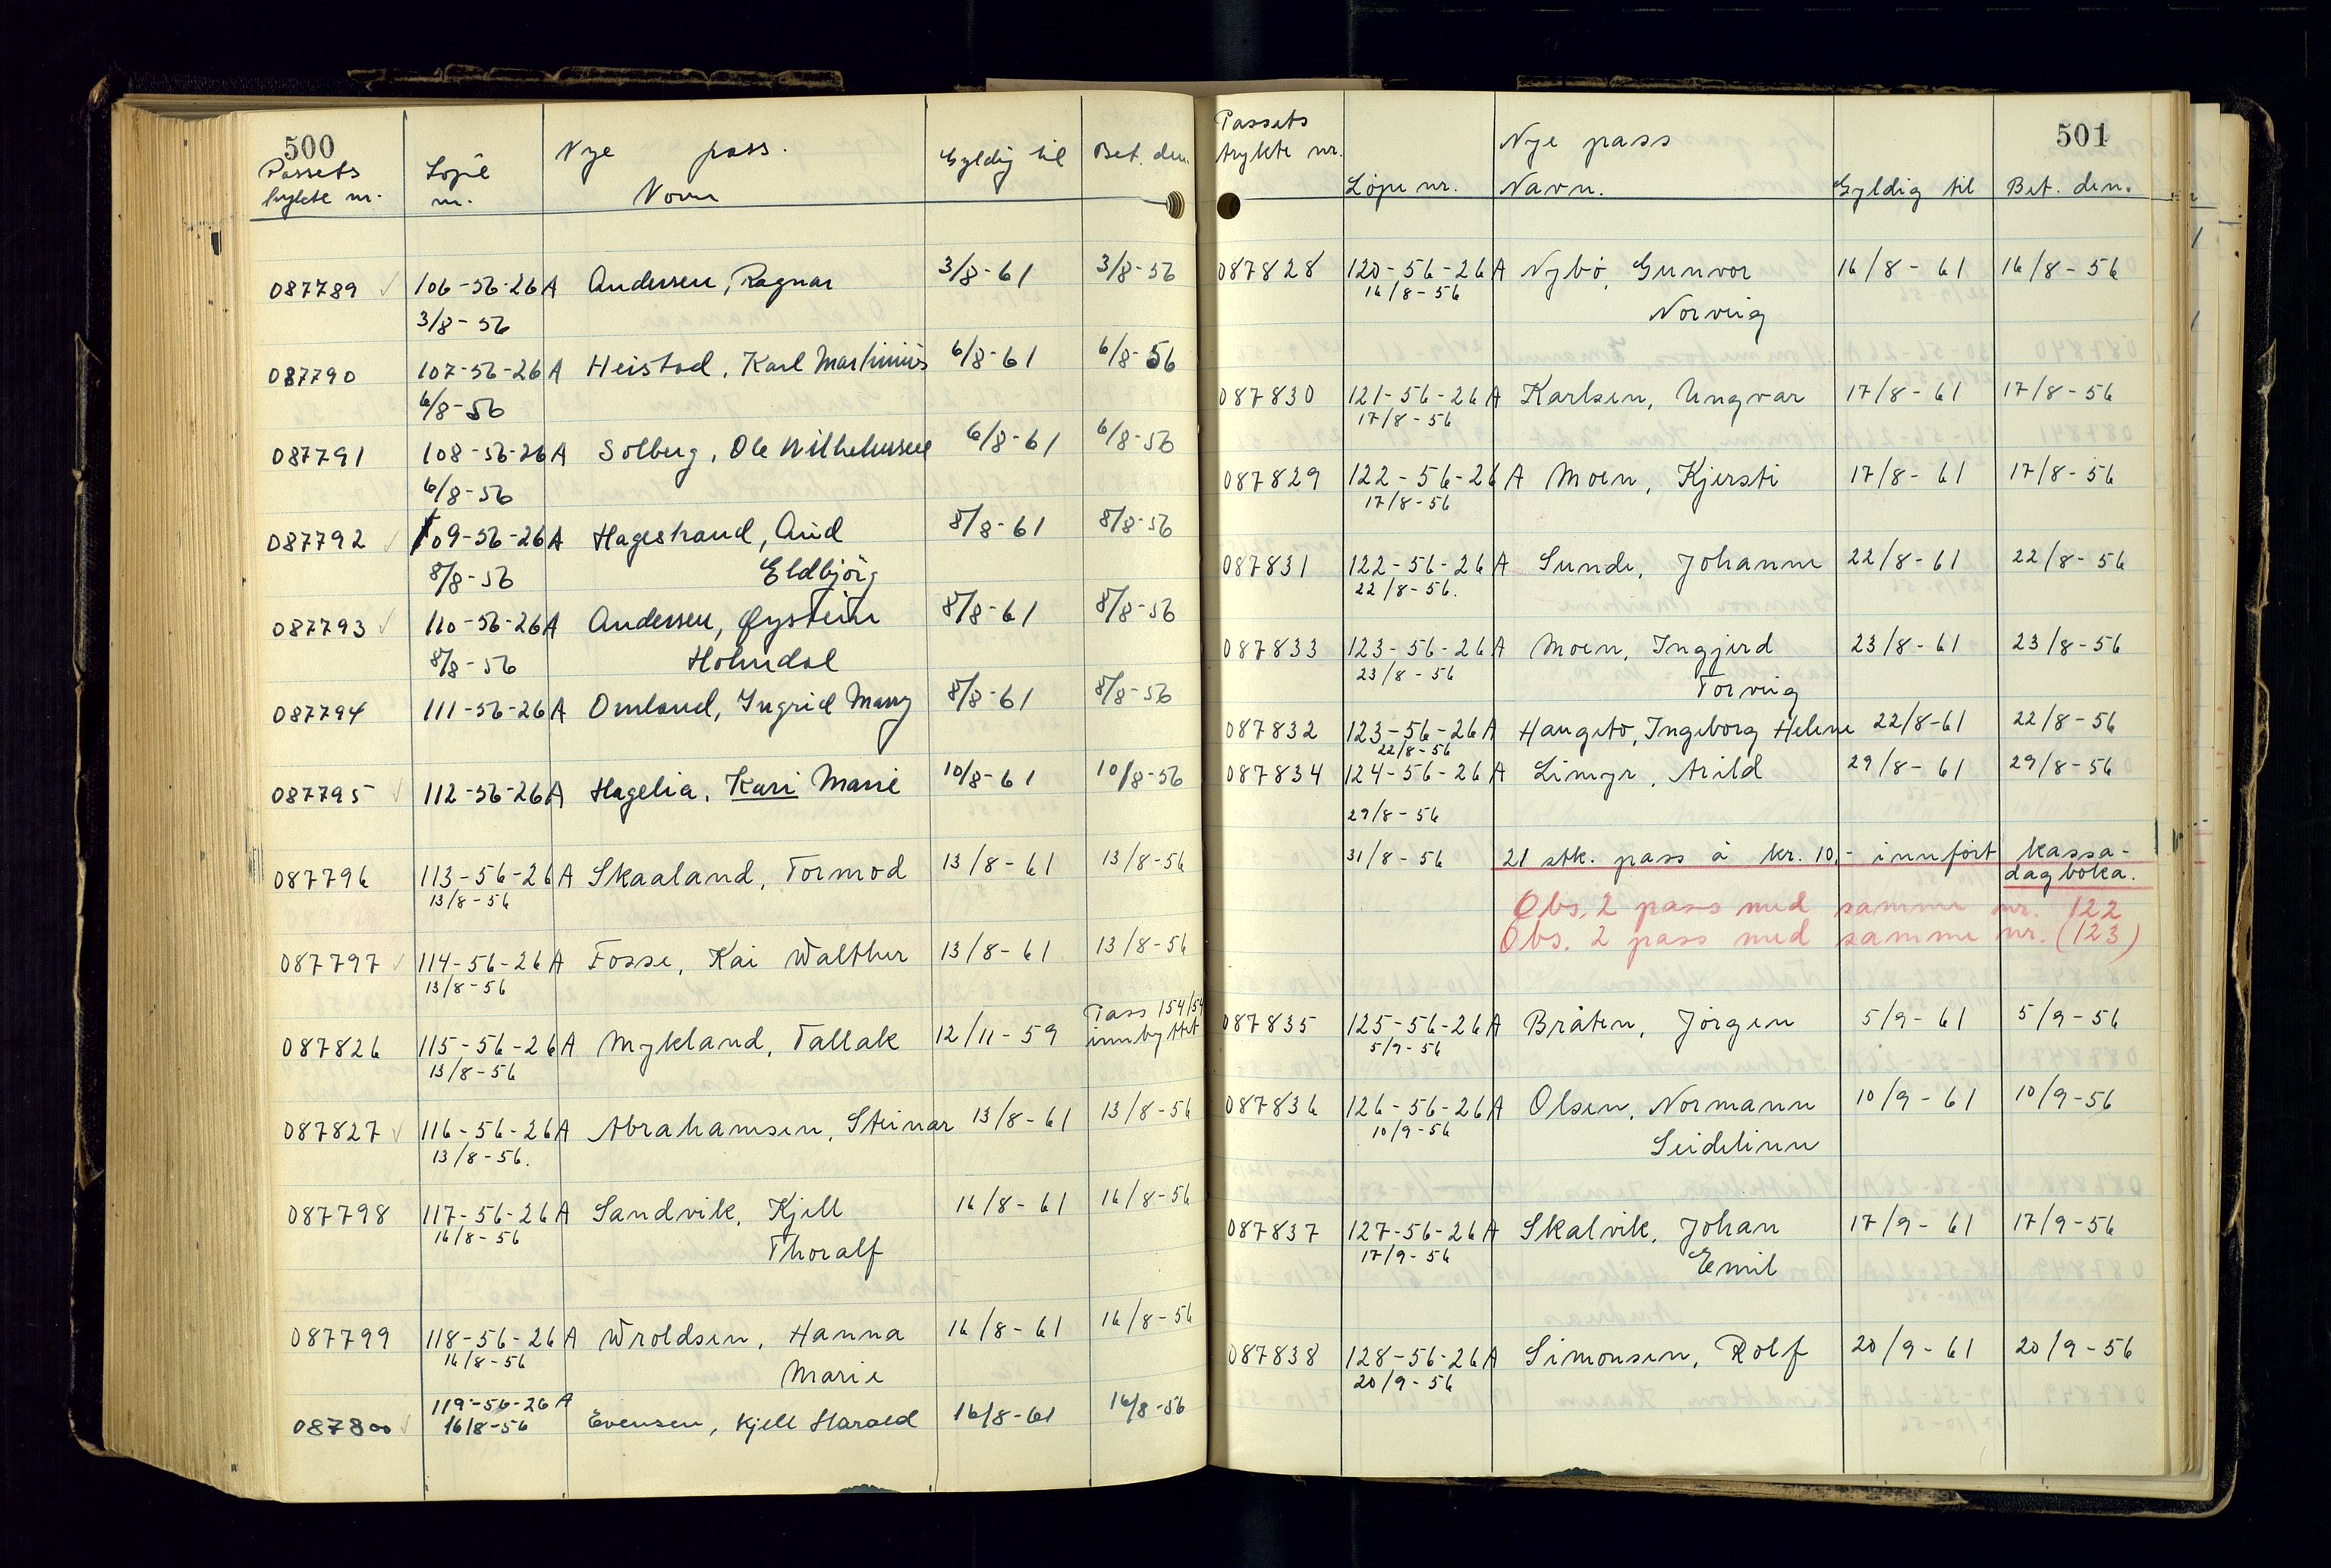 500
Nye pass.
Passets Løpe Gyldig til Bet. den.
trykte nr. nr. Navn
087789 106-56-26A Andersen, Ragnar 3/8-61 3/8-56
3/8-56
087790 107-56-26A Heistad, Karl Martinius 6/8-61 6/8-56
6/8-56
087791 108-56-26A Solberg, Ole Wilhelmsen 6/8-61 6/8-56
6/8-56
087792 109-56-26A Hagestrand, Aud 8/8-61 8/8-56
8/8-56 Eldbjörg
087793 110-56-26A Andersen, Øystein 8/8-61 8/8-56
8/8-56 Holmdal
087794 111-56-26A Omland, Ingrid Mary 8/8-61 8/8-56
087795 112-56-26A Hagelia, Kari Marie 10/8-61 10/8-56
087796 113-56-26A Skaaland, Tormod 13/8-61 13/8-56
13/8-56
087797 114-56-26A Fosse, Kai Walther 13/8-61 13/8-56
13/8-56
Pass 154/54
087826 115-56-26A Mykland, Tallak 12/11-59 innbyttet
13/8-56
087827 116-56-26A Abrahamsen, Steinar 13/8-61 13/8-56
13/8-56.
087798 117-56-26A Sandvik, Kjell 16/8-61 16/8-56
16/8-56 Thoralf
087799 118-56-26A Wroldsen, Hanna 16/8-61 16/8-56
16/8-56 Marie
119-56-26A
087800 16/8-56 Evensen, Kjell Harald 16/8-61 16/8-56
501
Passets
trykte nr. Nye pass
Löpe nr. Navn. Gyldig til Bet. den.
087828 120-56-26A Nybö, Gunvor 16/8-61 16/8-56
16/8-56 Norveig
087830 121-56-26A Karlsen, Ungvar 17/8-61 17/8-56
17/8-56
087829 122-56-26A Moen, Kjersti 17/8-61 17/8-56
17/8-56
087831 122-56-26A Sunde, Johanne 22/8-61 22/8-56
22/8-56.
087833 123-56-26A Moen, Ingjerd 23/8-61 23/8-56
23/8-56 Torveig
087832 123-56-26A Haugetö, Ingeborg Helene 22/8-61 22/8-56
22/8-56
087834 124-56-26A Limyr, Arild 29/8-61 29/8-56
29/8-56
31/8-56 21 stk. pass à kr. 10,- innfört kassa-
dagboka.
Obs. 2 pass med samme nr. 122
Obs. 2 pass med samme nr. (123)
087835 125-56-26A Bråten, Jörgen 5/9-61 5/9-56
5/9-56
087836 126-56-26A Olsen, Normann 10/9-61 10/9-56
10/9-56 Seidelinn
087837 127-56-26A Skalvik, Johan 17/9-61 17/9-56
17/9-56 Emil
087838 128-56-26A Simonsen, Rolf 20/9-61 20/9-56
20/9-56